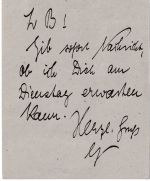 L B!
Gib sofort Nachricht,
ob ich Dich am
Dienstag erwarten
kann.
Herzl. Gruß